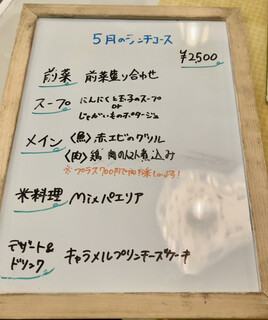 5月のランチコース
¥2,500
前菜 前菜盛り合わせ
スープ にんにくと玉子のスープ
or
じゃがいものポタージュ
メイン 〈魚〉赤エビのグリル
〈肉〉鶏肉の煮込み
※プラス700円で
米料理 Mixパエリア
デザート&
ドリンク キャラメルプリンチーズケーキ